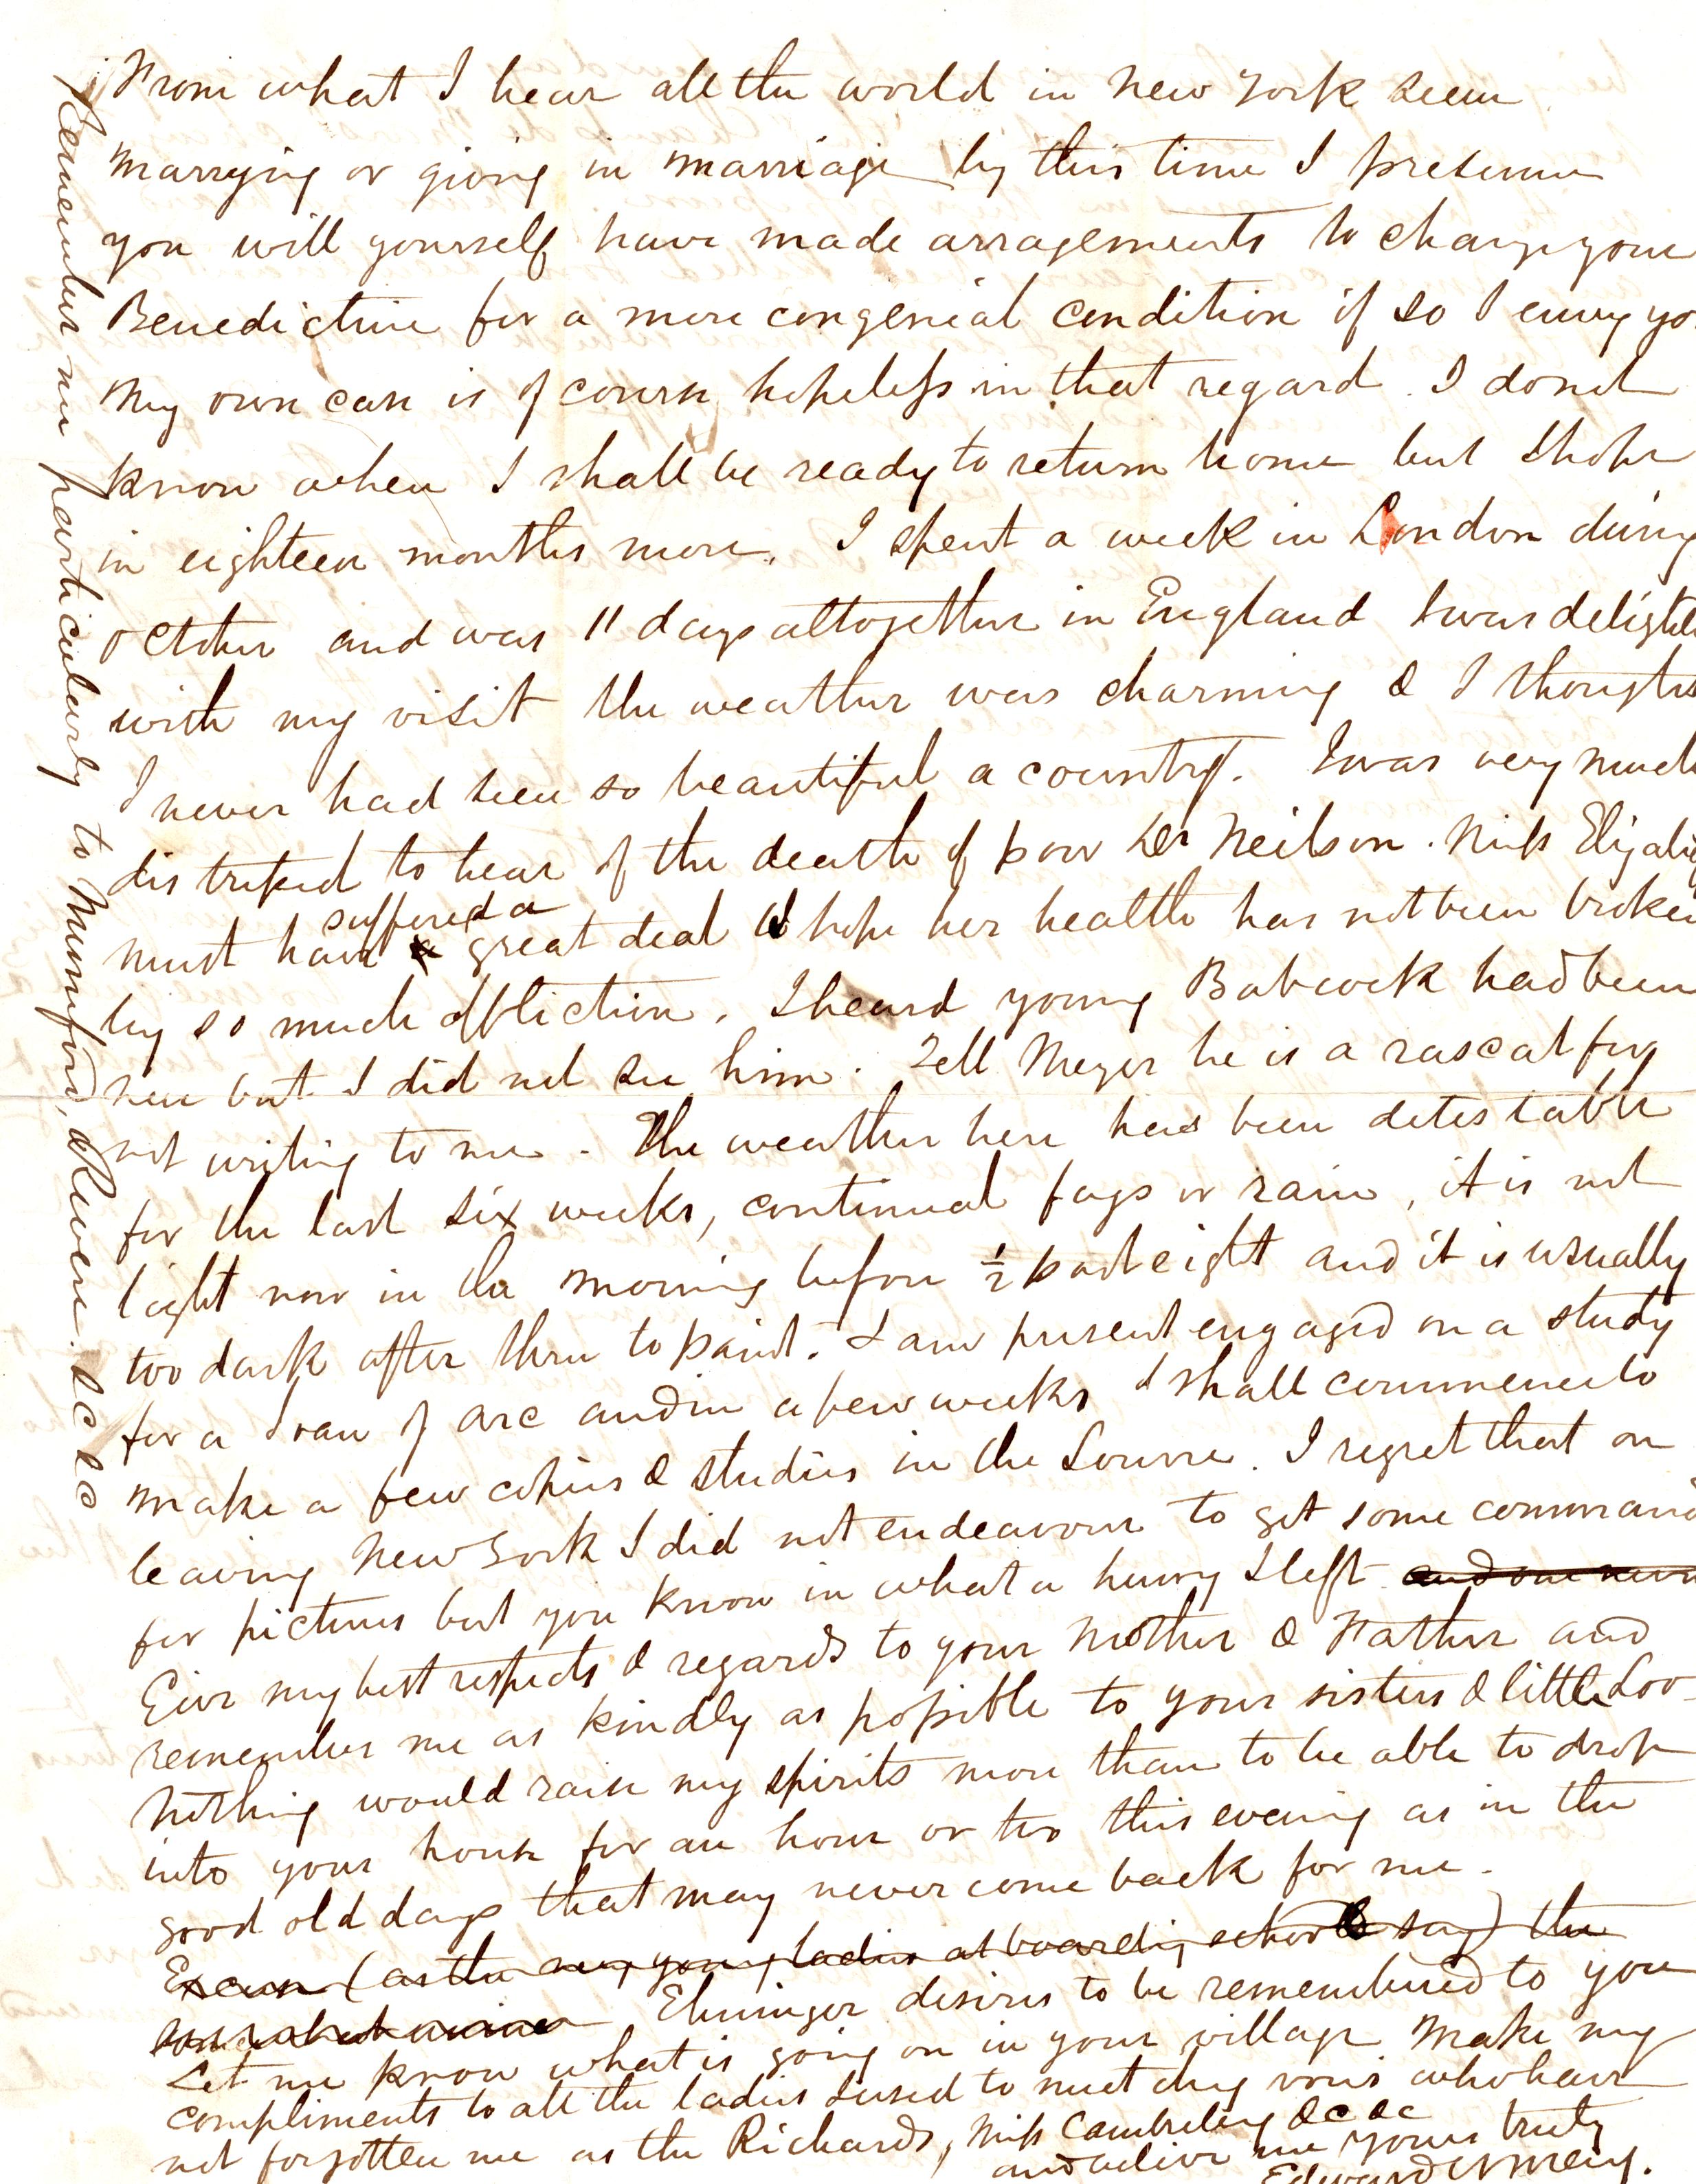 From what I hear all the world in New York seem
marrying or giving in marriage by this time I presume
you will yourself have made arragements to change your
Benedictine for a more congenial condition if so I envy yo
My own case is of course hopeless in that regard. I do not
know when I shall be ready to return home but I hope
in eighteen months more. I spent a week in London during
October and was 11 days altogether in England I was delighte
with my visit the weather was charming & I thought
I never had seen so beautiful a country. I was very much
distressed to hear of the death of poor Dr Neilson. Miss Eliza
must have suffered a great deal I hope her health has not been broken
by so much affliction. I heard young Babcock had been
here but I did not see him. Tell Meyer he is a rascal for
not writing to me. The weather here has been detestable
for the last six weeks, continual fogs or rain, it is not
light now in the morning before ½ past eight and it is usually
too dark after three to paint. I am present engaged on a study
for a Joan of Arc and in a few weeks I shall commence to
make a few copies & studies in the Louvre. I regret that on
leaving New York I did not endeavour to get some command
for pictures but you know in what a hurry I left and
Give my best respects & regards to your Mother & Father and
remember me as kindly as possible to your sisters & little Loo
Nothing would raise my spirits more than to be able to drop
into your house for an hour or two this evening as in the
good old days that may never come back for me.
Excuse (as the young ladies at boarding schools say) the
Ehninger desires to be remembered to you
Let me know what is going on in your village Make my
compliments to all the ladies I used to meet chez vous who have
not forgotten me as the Richards, Miss Cambreleng &c &c
and believe me yours truly
Edward H May.
Remember me particularly to Mumford, &c &c